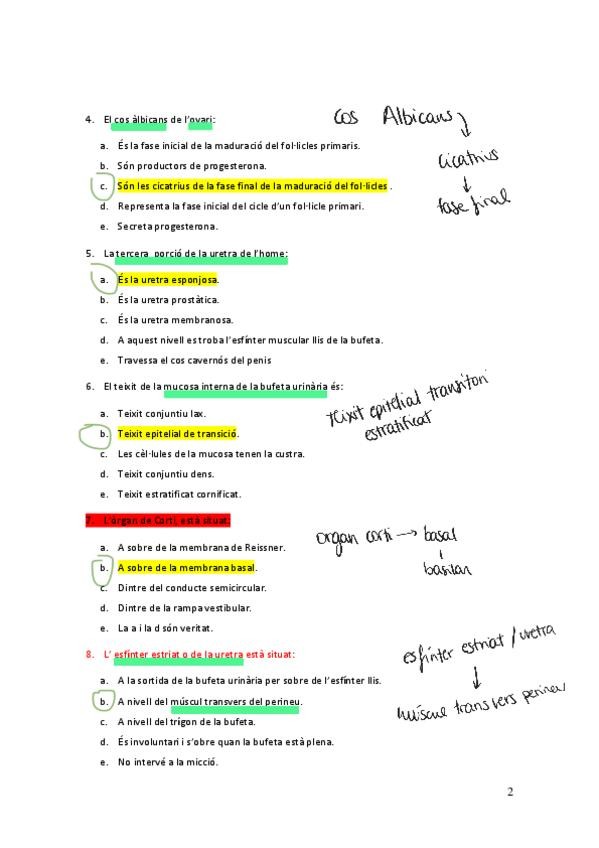 4. El cos àlbicans de l'ovari:
cos Albicans
a. És la fase inicial de la maduració del fol·licles primaris.
b. Són productors de progesterona.
cicatrius
c. Són les cicatrius de la fase final de la maduració del fol·licles .
fase final
d. Representa la fase inicial del cicle d'un fol·licle primari.
e. Secreta progesterona.
5. La tercera porció de la uretra de l'home:
a. És la uretra esponjosa.
b. És la uretra prostàtica.
c. És la uretra membranosa.
d. A aquest nivell es troba l'esfínter muscular llis de la bufeta.
e. Travessa el cos cavernós del penis
6. El teixit de la mucosa interna de la bufeta urinària és:
teixit epitelial transitori
estratificat
a. Teixit conjuntiu lax.
b. Teixit epitelial de transició.
c. Les cèl·lules de la mucosa tenen la custra.
d. Teixit conjuntiu dens.
e. Teixit estratificat cornificat.
7. L'òrgan de Corti, està situat:
organ corti → basal
a. A sobre de la membrana de Reissner.
b. A sobre de la membrana basal.
basilar
c. Dintre del conducte semicircular.
d. Dintre de la rampa vestibular.
e. La a i la d són veritat.
8. L' esfínter estriat o de la uretra està situat:
esfínter estriat / uretra
a. A la sortida de la bufeta urinària per sobre de l'esfínter llis.
b. A nivell del múscul transvers del perineu.
múscul transvers perineu
c. A nivell del trígon de la bufeta.
d. És involuntari i s'obre quan la bufeta està plena.
e. No intervé a la micció.
2